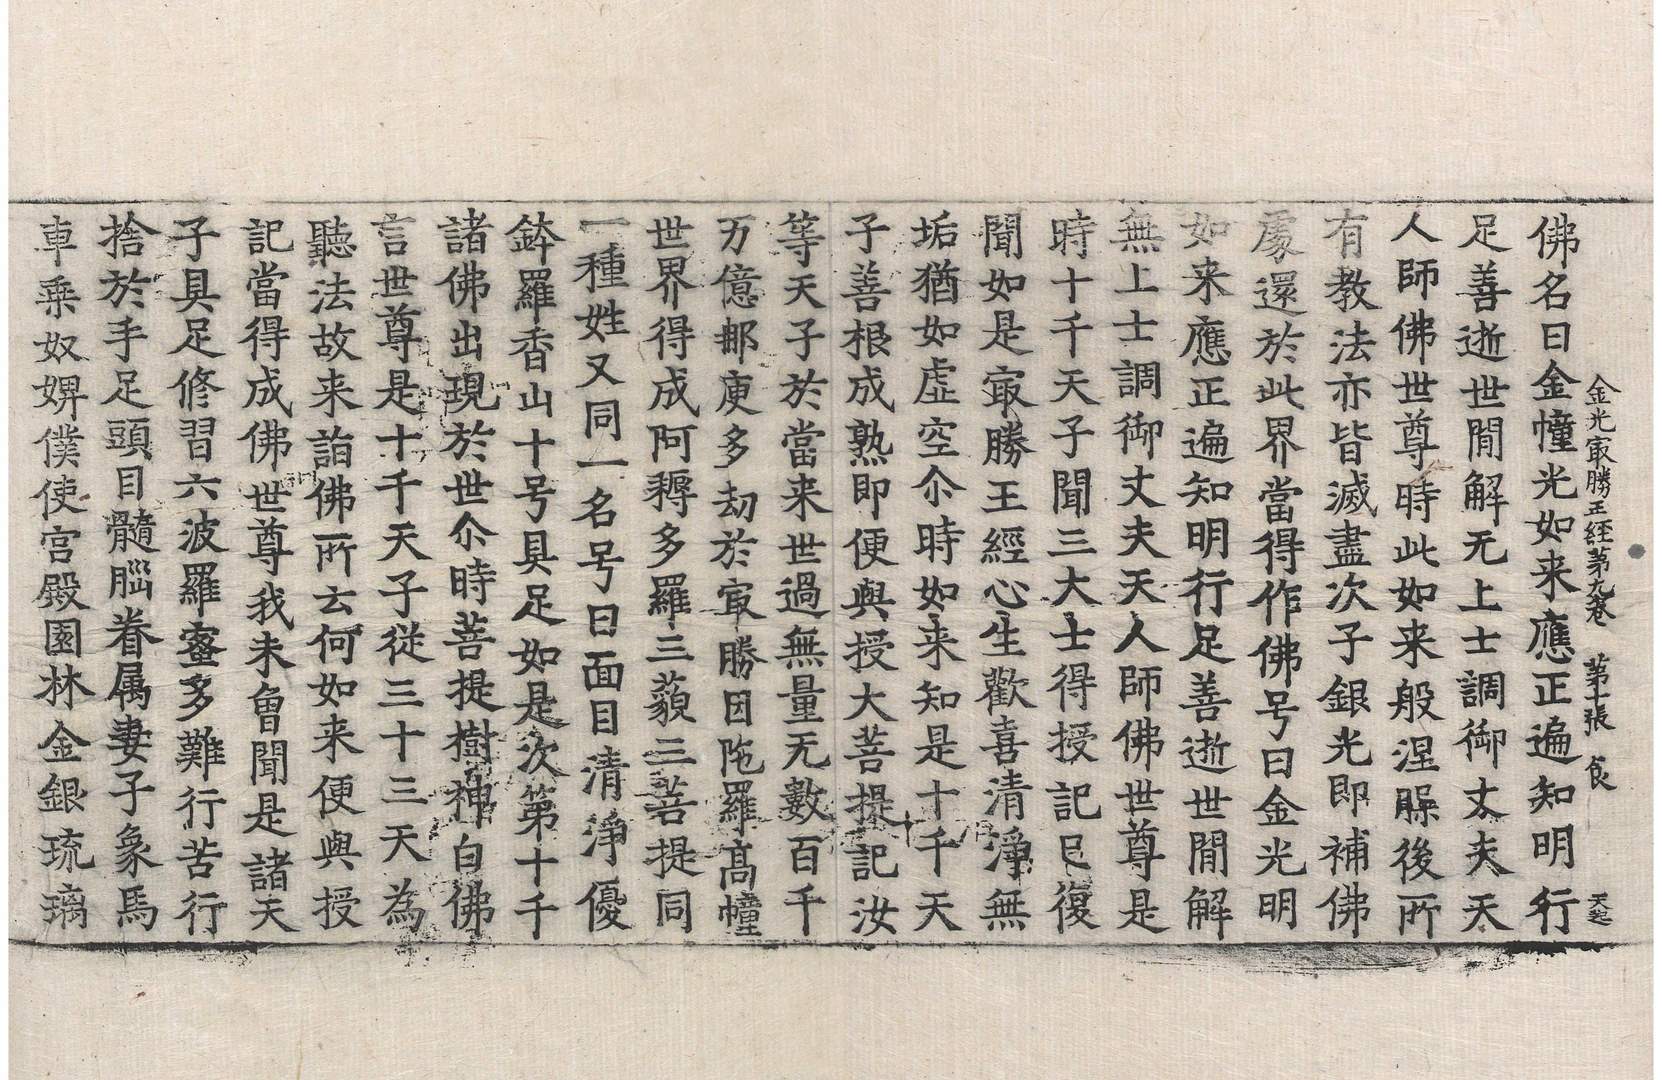 金光㝡勝王経苐九巻 苐十張 食 天
佛名曰金幢光如来應正遍知明行
足善逝世間解无上士調御丈夫天
人師佛世尊時此如来般涅槃後所
有教法亦皆滅盡次子銀光即補佛
處還於此界當得作佛号曰金光明
如来應正遍知明行足善逝世間解
無上士調御丈夫天人師佛世尊是
時十千天子聞三大士得授記已復
聞如是㝡勝王經心生歡喜清淨無
垢猶如虛空尒時如来知是十千天
子善根成熟即便與授大菩提記汝
等天子於當来世過無量无數百千
万億那庾多劫於㝡勝因陁羅髙幢
世界得成阿耨多羅三藐三菩提同
一種姓又同一名号曰面目清淨優
鉢羅香山十号具足如是次第十千
諸佛出現於世尒時菩提樹神白佛
言世尊是十千天子從三十三天為
聽法故来詣佛所云何如来便與授
記當得成佛世尊我未曾聞是諸天
子具足修習六波羅蜜多難行苦行
捨於手足頭目髓腦眷属妻子象馬
車乘奴婢僕使宫殿園林金銀琉璃